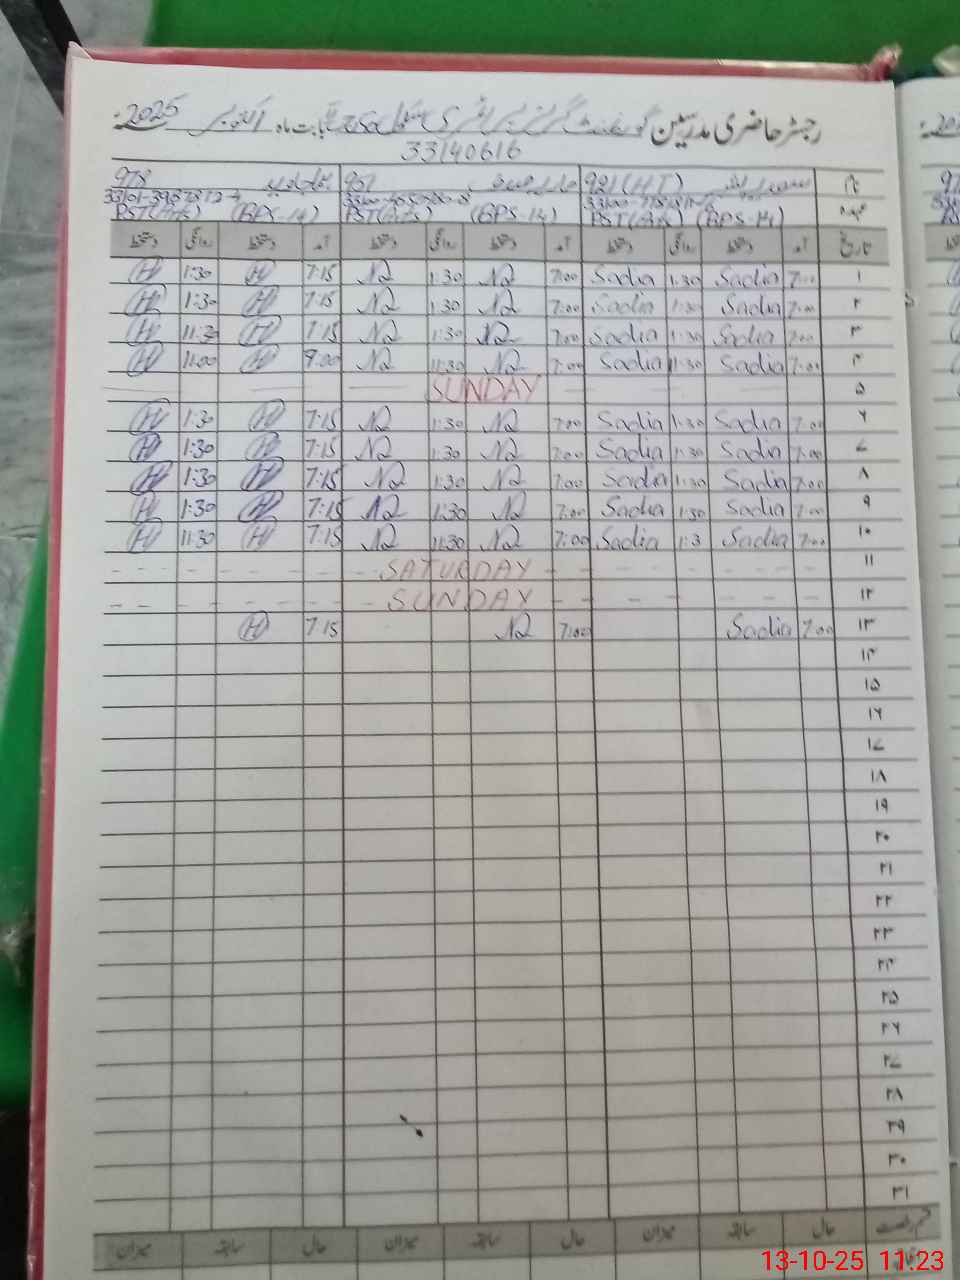 رجسٹر حاضری مدرسین گورنمنٹ گرلز پرائمری سکول بابت ماہ اکتوبر 2025ء
33140616
نام 921 (HT) 951 978
عہدہ PST (Arts) (BPS-14) PST (Arts) (BPS-14) PST (Arts) (BPS-14)
تاریخ آمد دستخط روانگی دستخط آمد دستخط روانگی دستخط آمد دستخط روانگی دستخط
۱ 7:00 Sadia 1:30 Sadia 7:00 N2 1:30 N2 7:15 H 1:30 H
۲ 7:00 Sadia 1:30 Sadia 7:00 N2 1:30 N2 7:15 H 1:30 H
۳ 7:00 Sadia 1:30 Sadia 7:00 N2 1:30 N2 7:15 H 11:30 H
۴ 7:00 Sadia 11:30 Sadia 7:00 N2 11:30 N2 9:00 H 11:00 H
۵ SUNDAY
۶ 7:00 Sadia 1:30 Sadia 7:00 N2 1:30 N2 7:15 H 1:30 H
۷ 7:00 Sadia 1:30 Sadia 7:00 N2 1:30 N2 7:15 H 1:30 H
۸ 7:00 Sadia 1:30 Sadia 7:00 N2 1:30 N2 7:15 H 1:30 H
۹ 7:00 Sadia 1:30 Sadia 7:00 N2 1:30 N2 7:15 H 1:30 H
۱۰ 7:00 Sadia 1:3 Sadia 7:00 N2 11:30 N2 7:15 H 11:30 H
۱۱ SATURDAY
۱۲ SUNDAY
۱۳ 7:00 Sadia 7:00 N2 7:15 H
۱۴
۱۵
۱۶
۱۷
۱۸
۱۹
۲۰
۲۱
۲۲
۲۳
۲۴
۲۵
۲۶
۲۷
۲۸
۲۹
۳۰
۳۱
قسم رخصت حال سابقہ میزان حال سابقہ میزان حال سابقہ میزان
13-10-25 11:23